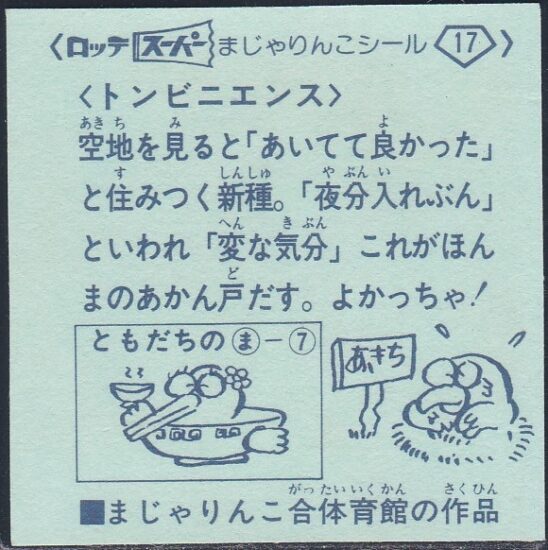 〈ロッテスーパーまじゃりんこシール 17〉
〈トンビニエンス〉
空地を見ると「あいてて良かった」
と住みつく新種。「夜分入れぶん」
といわれ「変な気分」これがほん
まのあかん戸だす。よかっちゃ!
ともだちの ま-7
あきち
■まじゃりんこ合体育館の作品